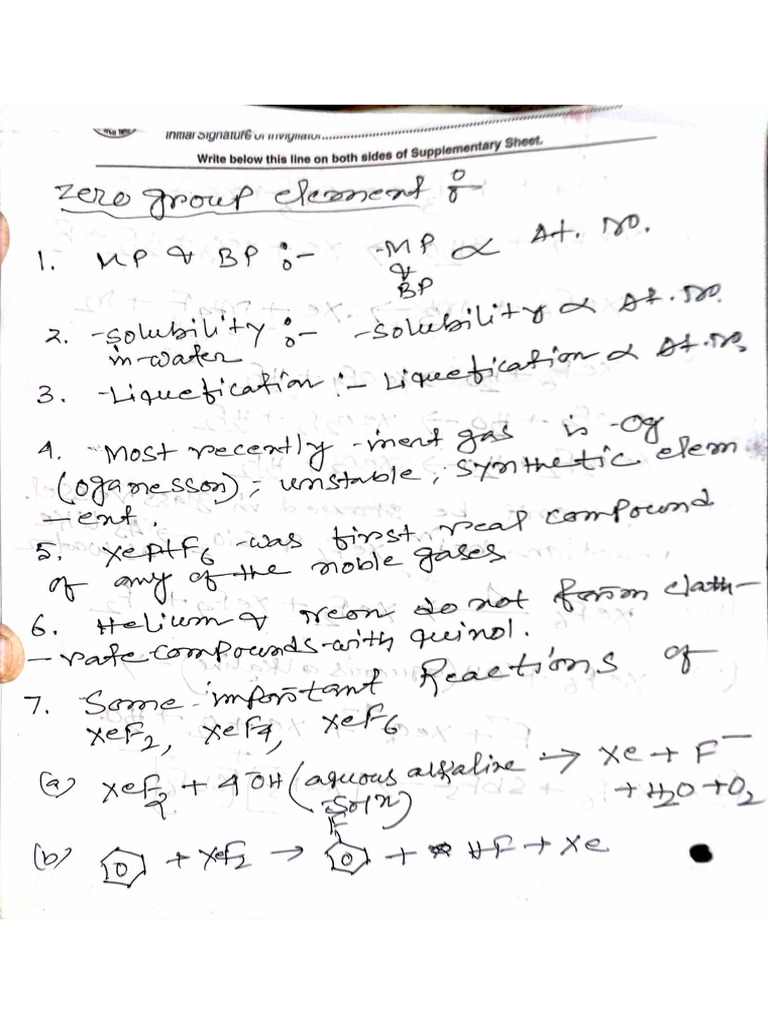 Initial Signature of Invigilator
Write below this line on both sides of Supplementary Sheet.
Zero group element :-
1. MP & BP :- MP & BP ∝ At. No.
2. Solubility :- Solubility ∝ At. No.
in water
3. Liquefication :- Liquefication ∝ At. No.
4. Most recently inert gas is Og
(oganesson); unstable; synthetic elem
-ent.
5. XePtF6 was first real compound
of any of the noble gases
6. Helium & neon do not form clath-
-rate compounds with quinol.
7. Some important Reactions of
XeF2, XeF4, XeF6
(a) XeF2 + 4OH (aquous alkaline → Xe + F⁻
soln) + H2O + O2
F
(b) + XeF2 → + HF + Xe